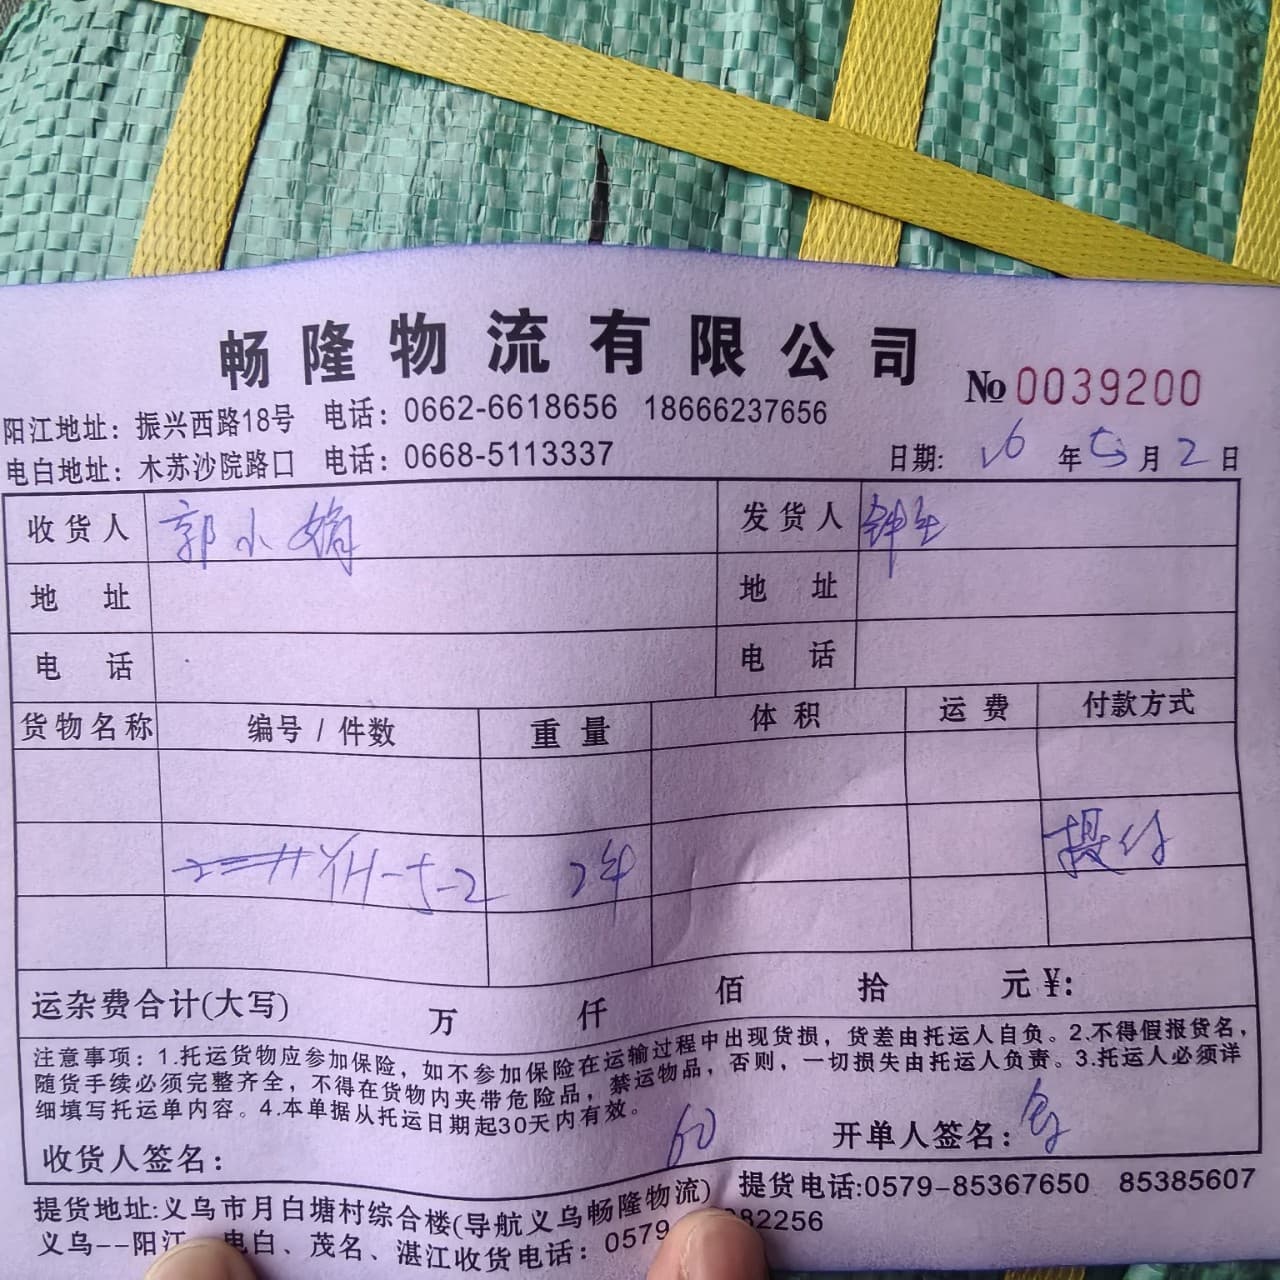 畅隆物流有限公司
No 0039200
阳江地址：振兴西路18号 电话：0662-6618656 18666237656
电白地址：木苏沙院路口 电话：0668-5113337
日期: 26 年 5 月 2 日
收货人 郭小娟 发货人 钟生
地 址 地 址
电 话 电 话
货物名称 编号 / 件数 重量 体积 运费 付款方式
YH-5-2 2件 提付
运杂费合计(大写) 万 仟 佰 拾 元 ¥:
注意事项：1.托运货物应参加保险，如不参加保险在运输过程中出现货损，货差由托运人自负。2.不得假报货名，
随货手续必须完整齐全，不得在货物内夹带危险品，禁运物品，否则，一切损失由托运人负责。3.托运人必须详
细填写托运单内容。4.本单据从托运日期起30天内有效。
60
收货人签名： 开单人签名：
提货地址:义乌市月白塘村综合楼(导航义乌畅隆物流) 提货电话:0579-85367650 85385607
义乌--阳江 电白、茂名、湛江收货电话：0579 82256